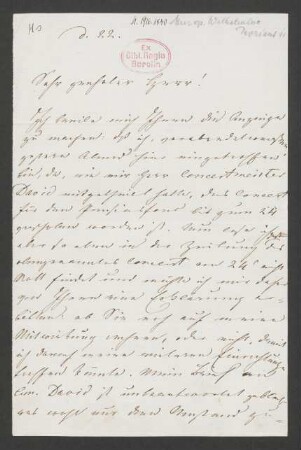 d. 22.
Ex
Bibl. Regia
Berolin.
Sehr geehrter Herr!
Ich beeile mich Ihnen die Anzeige
zu machen, daß ich
gestern Abend hier eingetroffen
bin, da, wie mir Herr Concertmeister
David mitgetheilt hatte, das Concert
für den bis zum 24
worden ist. Nun lese ich
aber so eben in der Zeitung das
Concert am 24 nicht
Statt findet und möchte ich mir daher
von Ihnen eine Erklärung er-
bitten ob Sie noch auf meine
Mitwirkung rechnen, oder nicht, damit
ich darnach meine weiteren Einrichtungen
treffen könnte. Mein Brief an
David ist unbeantwortet geblie-
wohl nur dem Umstand zu-